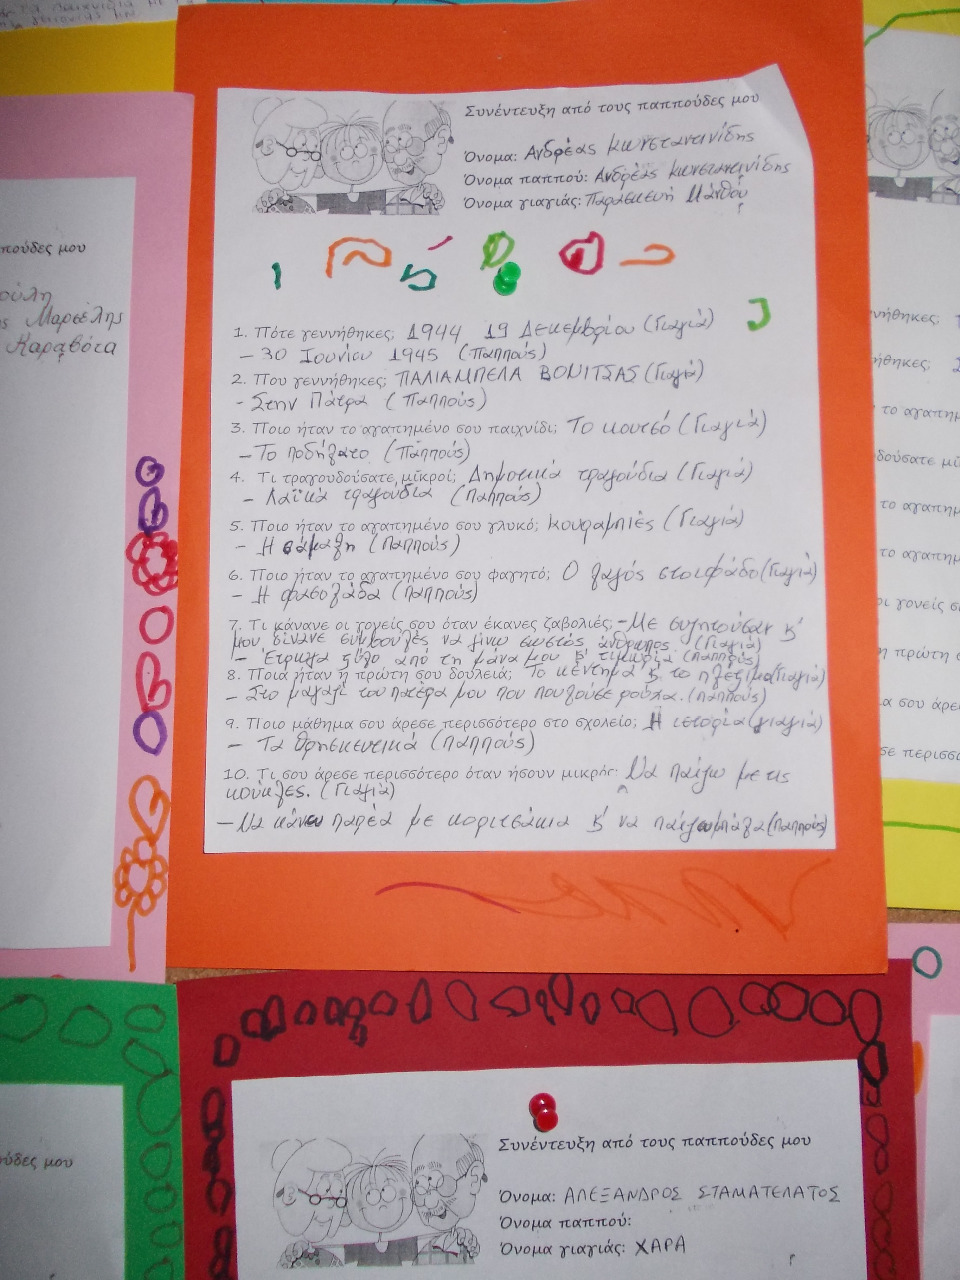 Συνέντευξη από τους παππούδες μου
Όνομα: Ανδρέας Κωνσταντινίδης
Όνομα παππού: Ανδρέας Κωνσταντινίδης
Όνομα γιαγιάς: Παρασκευή Μάνθου
1. Πότε γεννήθηκες; 1944 19 Δεκεμβρίου (Γιαγιά)
- 30 Ιουνίου 1945 (Παππούς)
2. Που γεννήθηκες; ΠΑΛΙΑΜΠΕΛΑ ΒΟΝΙΤΣΑΣ (Γιαγιά)
- Στην Πάτρα (Παππούς)
3. Ποιο ήταν το αγαπημένο σου παιχνίδι; Το κουτσό (Γιαγιά)
- Το ποδήλατο (Παππούς)
4. Τι τραγουδούσατε μικροί; Δημοτικά τραγούδια (Γιαγιά)
- Λαϊκά τραγούδια (Παππούς)
5. Ποιο ήταν το αγαπημένο σου γλυκό; κουραμπιές (Γιαγιά)
- Η σάμαλη (Παππούς)
6. Ποιο ήταν το αγαπημένο σου φαγητό; Ο λαγός στιφάδο (Γιαγιά)
- Η φασολάδα (Παππούς)
7. Τι κάνανε οι γονείς σου όταν έκανες ζαβολιές; - Με συζητούσαν κ'
μου δίνανε συμβουλές να γίνω σωστός άνθρωπος (Γιαγιά)
- Έτρωγα ξύλο από τη μάνα μου κ' τιμωρία (Παππούς)
8. Ποιά ήταν η πρώτη σου δουλειά; Το κέντημα κ' το πλέξιμο (Γιαγιά)
- Στο μαγαζί του πατέρα μου που πουλούσε ρούχα. (Παππούς)
9. Ποιο μάθημα σου άρεσε περισσότερο στο σχολείο; Η ιστορία (γιαγιά)
- Τα Θρησκευτικά (Παππούς)
10. Τι σου άρεσε περισσότερο όταν ήσουν μικρός; Να παίζω με τις
κούκλες. (Γιαγιά)
- Να κάνω παρέα με κοριτσάκια κ' να παίζω μπάλα (Παππούς)
Συνέντευξη από τους παππούδες μου
Όνομα: ΑΛΕΞΑΝΔΡΟΣ ΣΤΑΜΑΤΕΛΑΤΟΣ
Όνομα παππού:
Όνομα γιαγιάς: ΧΑΡΑ
μου
Μαρσέλης
Καραβότα
μου
γεννήθηκες;
το αγαπημ
το αγαπημ
το αγαπημ
οι γονείς σ
η πρώτη σ
σου άρε
περισσ